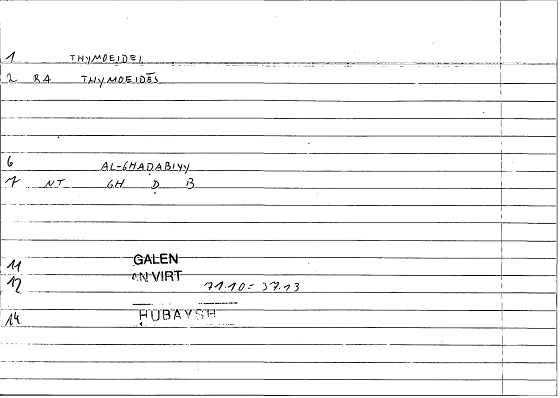 1 THYMOEIDEI
2 RA THYMOEIDĒS
6 AL-GHAḌABIYY
7 NT GH Ḍ B
11 GALEN
12 AN VIRT 71.10 = 37.13
14 HUBAYSH